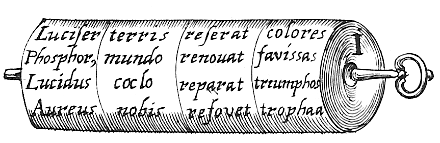 Lucifer terris reserat colores
Phosphor, mundo renouat favissas
Lucidus cœlo reparat triumphos
Aureus nobis refovet trophæa
I